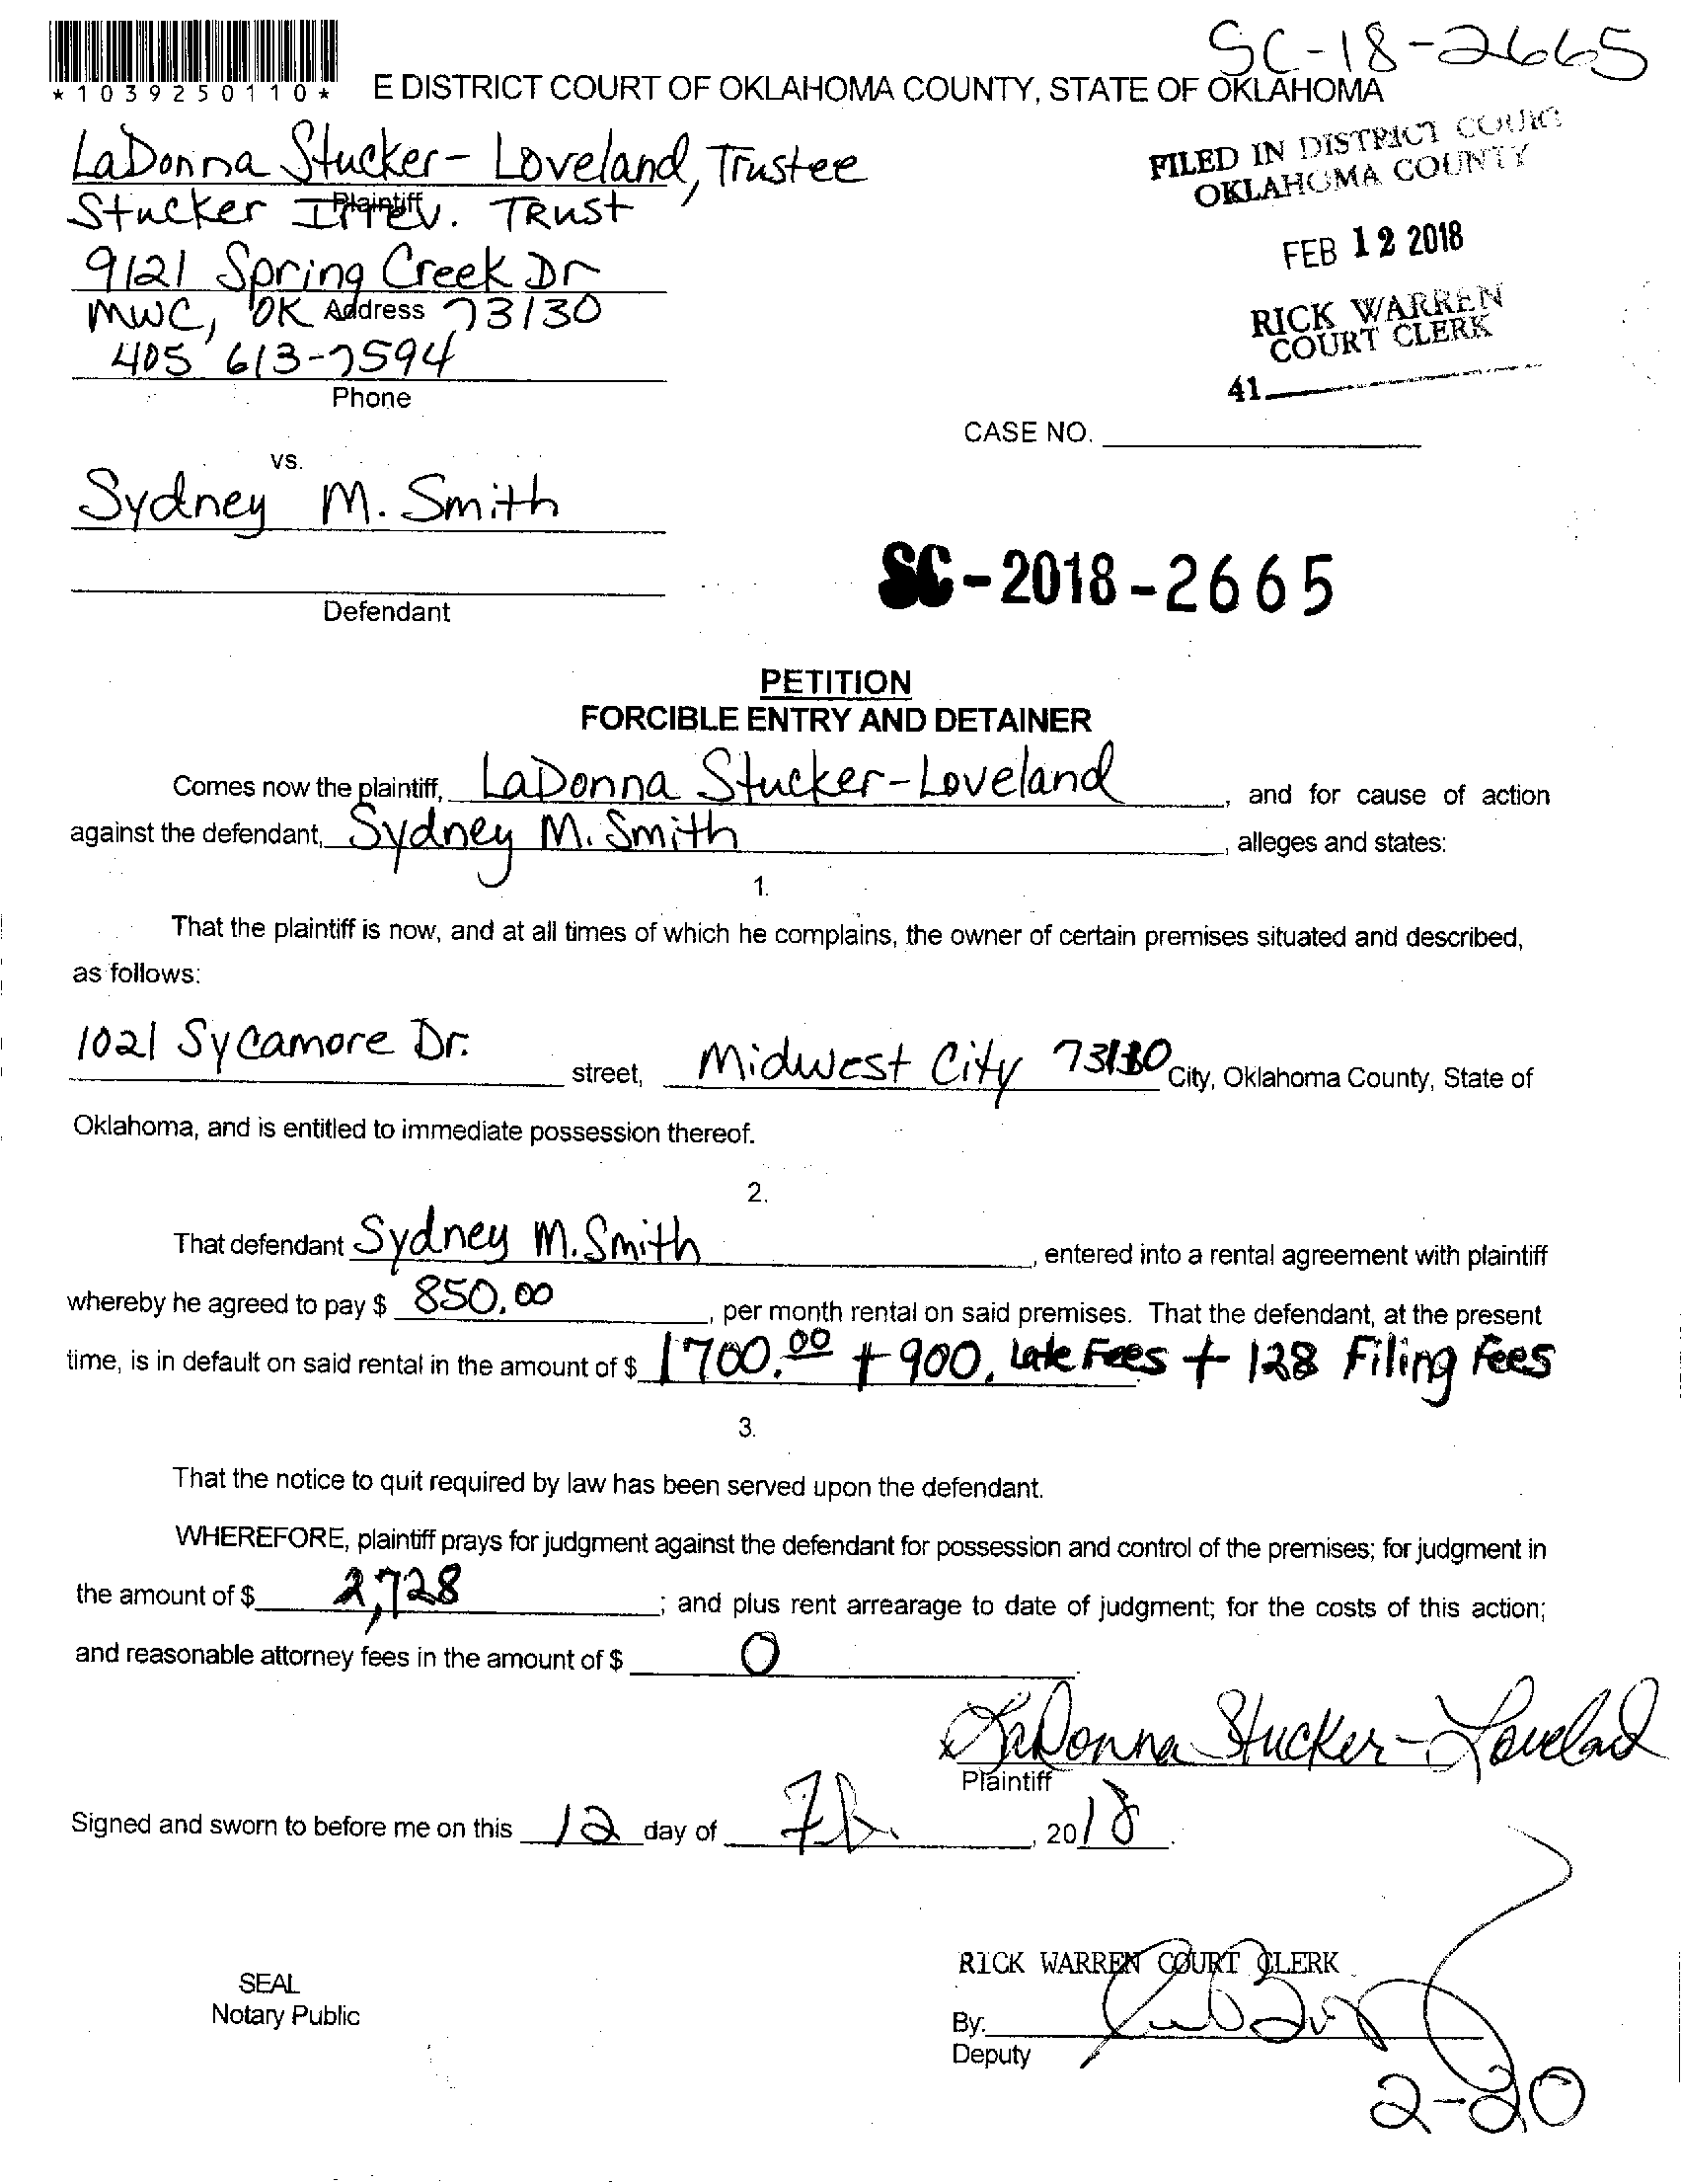 SC-18-2665
*1039250110*
E DISTRICT COURT OF OKLAHOMA COUNTY, STATE OF OKLAHOMA
FILED IN DISTRICT COURT
OKLAHOMA COUNTY
FEB 12 2018
RICK WARREN
COURT CLERK
41
LaDonna Stucker-Loveland, Trustee
Plaintiff
Stucker Irrev. Trust
9121 Spring Creek Dr
Address
MWC, OK 73130
405 613-7594
Phone
CASE NO.
vs.
Sydney M. Smith
Defendant
SC-2018-2665
PETITION
FORCIBLE ENTRY AND DETAINER
Comes now the plaintiff, LaDonna Stucker-Loveland, and for cause of action
against the defendant, Sydney M. Smith, alleges and states:
1.
That the plaintiff is now, and at all times of which he complains, the owner of certain premises situated and described,
as follows:
1021 Sycamore Dr. street, Midwest City 73130 City, Oklahoma County, State of
Oklahoma, and is entitled to immediate possession thereof.
2.
That defendant Sydney M. Smith, entered into a rental agreement with plaintiff
whereby he agreed to pay $ 850.00, per month rental on said premises. That the defendant, at the present
time, is in default on said rental in the amount of $ 1700.00 + 900. Late Fees + 128 Filing Fees
3.
That the notice to quit required by law has been served upon the defendant.
WHEREFORE, plaintiff prays for judgment against the defendant for possession and control of the premises; for judgment in
the amount of $ 2,728; and plus rent arrearage to date of judgment; for the costs of this action;
and reasonable attorney fees in the amount of $ 0.
x LaDonna Stucker-Loveland
Plaintiff
Signed and sworn to before me on this 12 day of Feb, 2018.
RICK WARREN COURT CLERK
SEAL
Notary Public
By:
Deputy
2-20